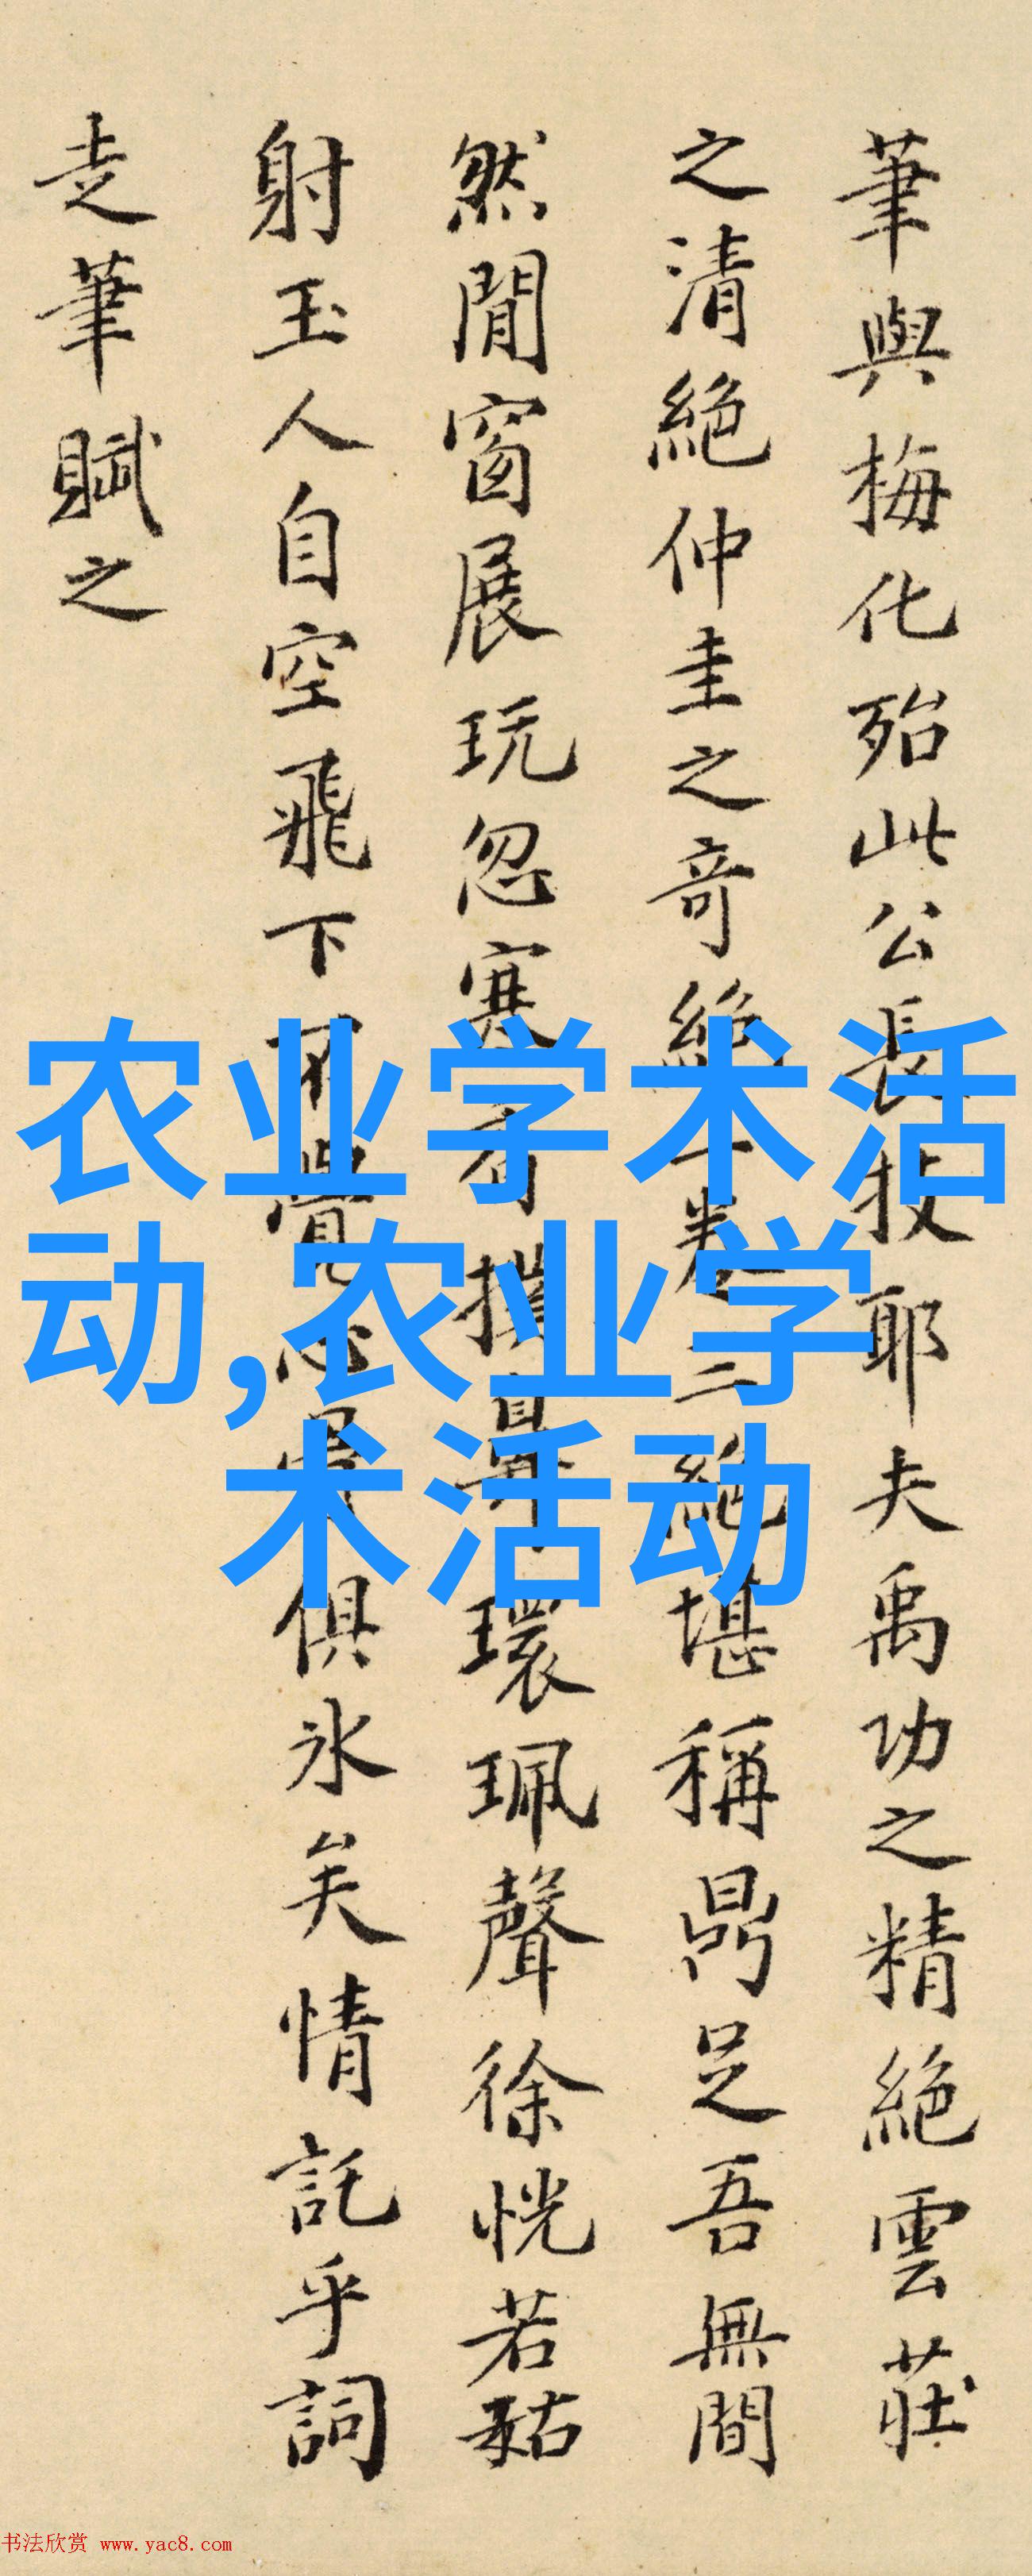 筆與梅化殆此公長技耶夫禹功之精絕雲莊
之清絕仲圭之奇絕一卷三絕堪稱鼎足吾無間
然閒窗展玩忽寒香撲鼻環珮聲徐恍若藐姑
射玉人自空飛下不覺心骨俱冰矣情託乎詞
走筆賦之
农业学术活
动,农业学
术活动
书法欣赏 www.yac8.com